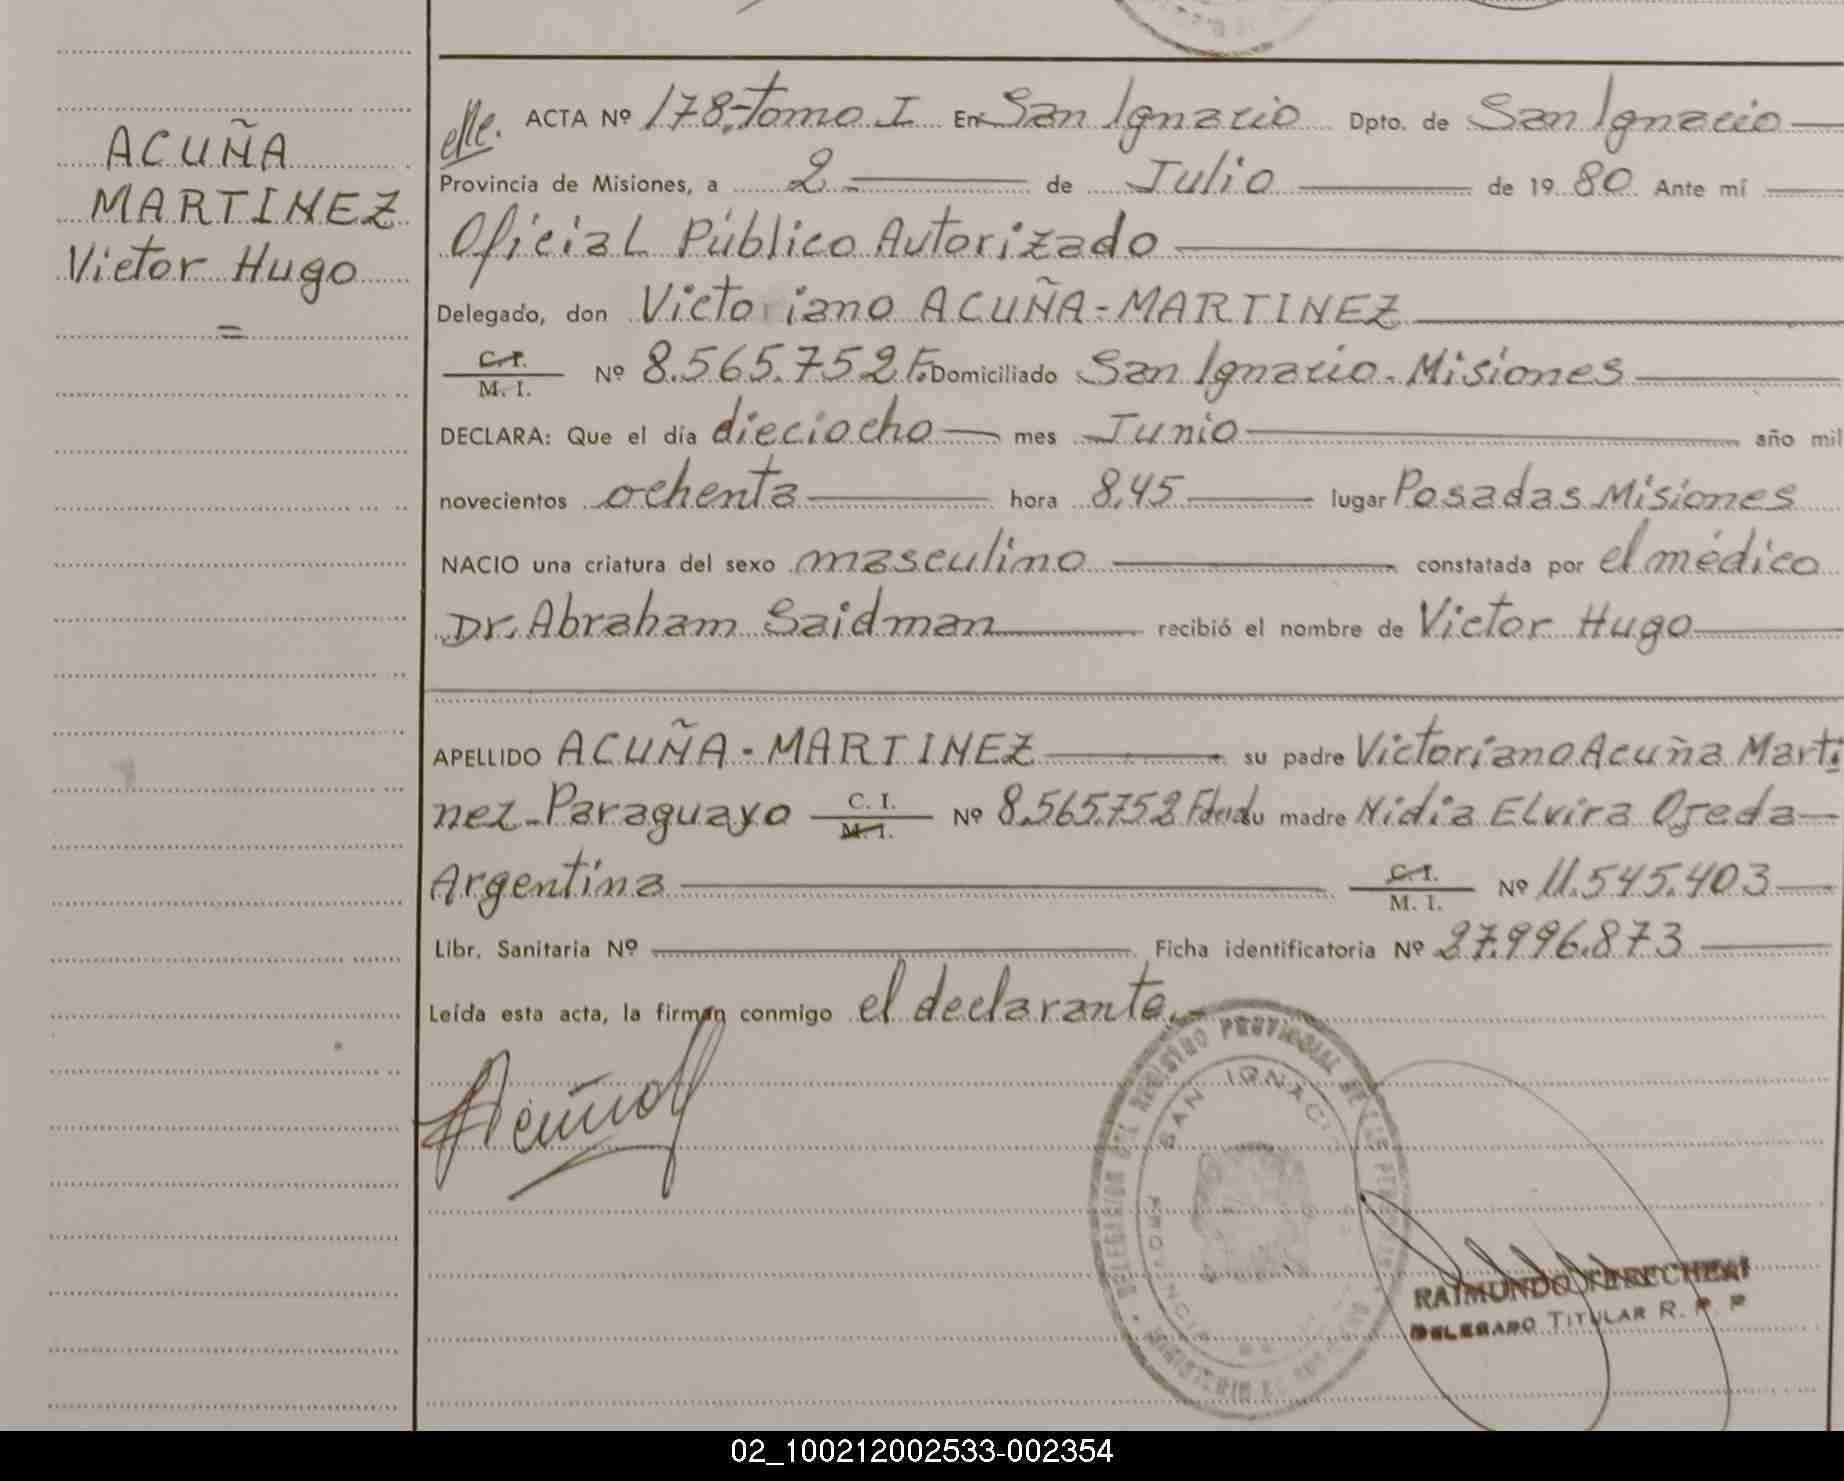 ACUÑA
MARTINEZ
Victor Hugo
=
ACTA Nº 178,-Tomo I En San Ignacio Dpto. de San Ignacio
Provincia de Misiones, a 2 de Julio de 1980 Ante mí
Oficial Público Autorizado
Delegado, don Victoriano ACUÑA-MARTINEZ
C. I. / M. I. Nº 8.565.752 F. Domiciliado San Ignacio - Misiones
DECLARA: Que el día dieciocho mes Junio año mil
novecientos ochenta hora 8,45 lugar Posadas Misiones
NACIO una criatura del sexo masculino constatada por el médico
Dr. Abraham Saidman recibió el nombre de Victor Hugo
APELLIDO ACUÑA - MARTINEZ su padre Victoriano Acuña Marti
nez - Paraguayo C. I. / M. I. Nº 8.565.752 su madre Nidia Elvira Ojeda
Argentina C. I. / M. I. Nº 11.545.403
Libr. Sanitaria Nº Ficha identificatoria Nº 27.996.873
Leída esta acta, la firman conmigo el declarante.-
Acuña
DELEGACION DEL REGISTRO PROVINCIAL DE LAS PERSONAS
SAN IGNACIO
PROVINCIA
MINISTERIO DE
RAIMUNDO
DELEGADO TITULAR R. P. P
02_100212002533-002354